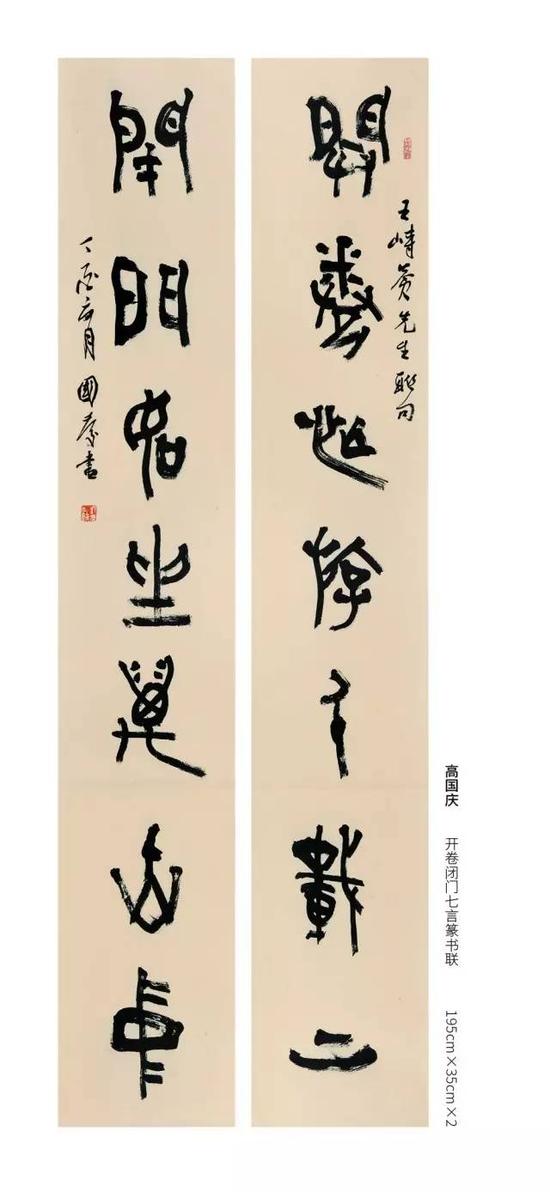 開卷游千載上
王先生聯句
閉門坐萬山中
丁酉月國慶書
高国庆 开卷闭门七言篆书联 195cm×35cm×2